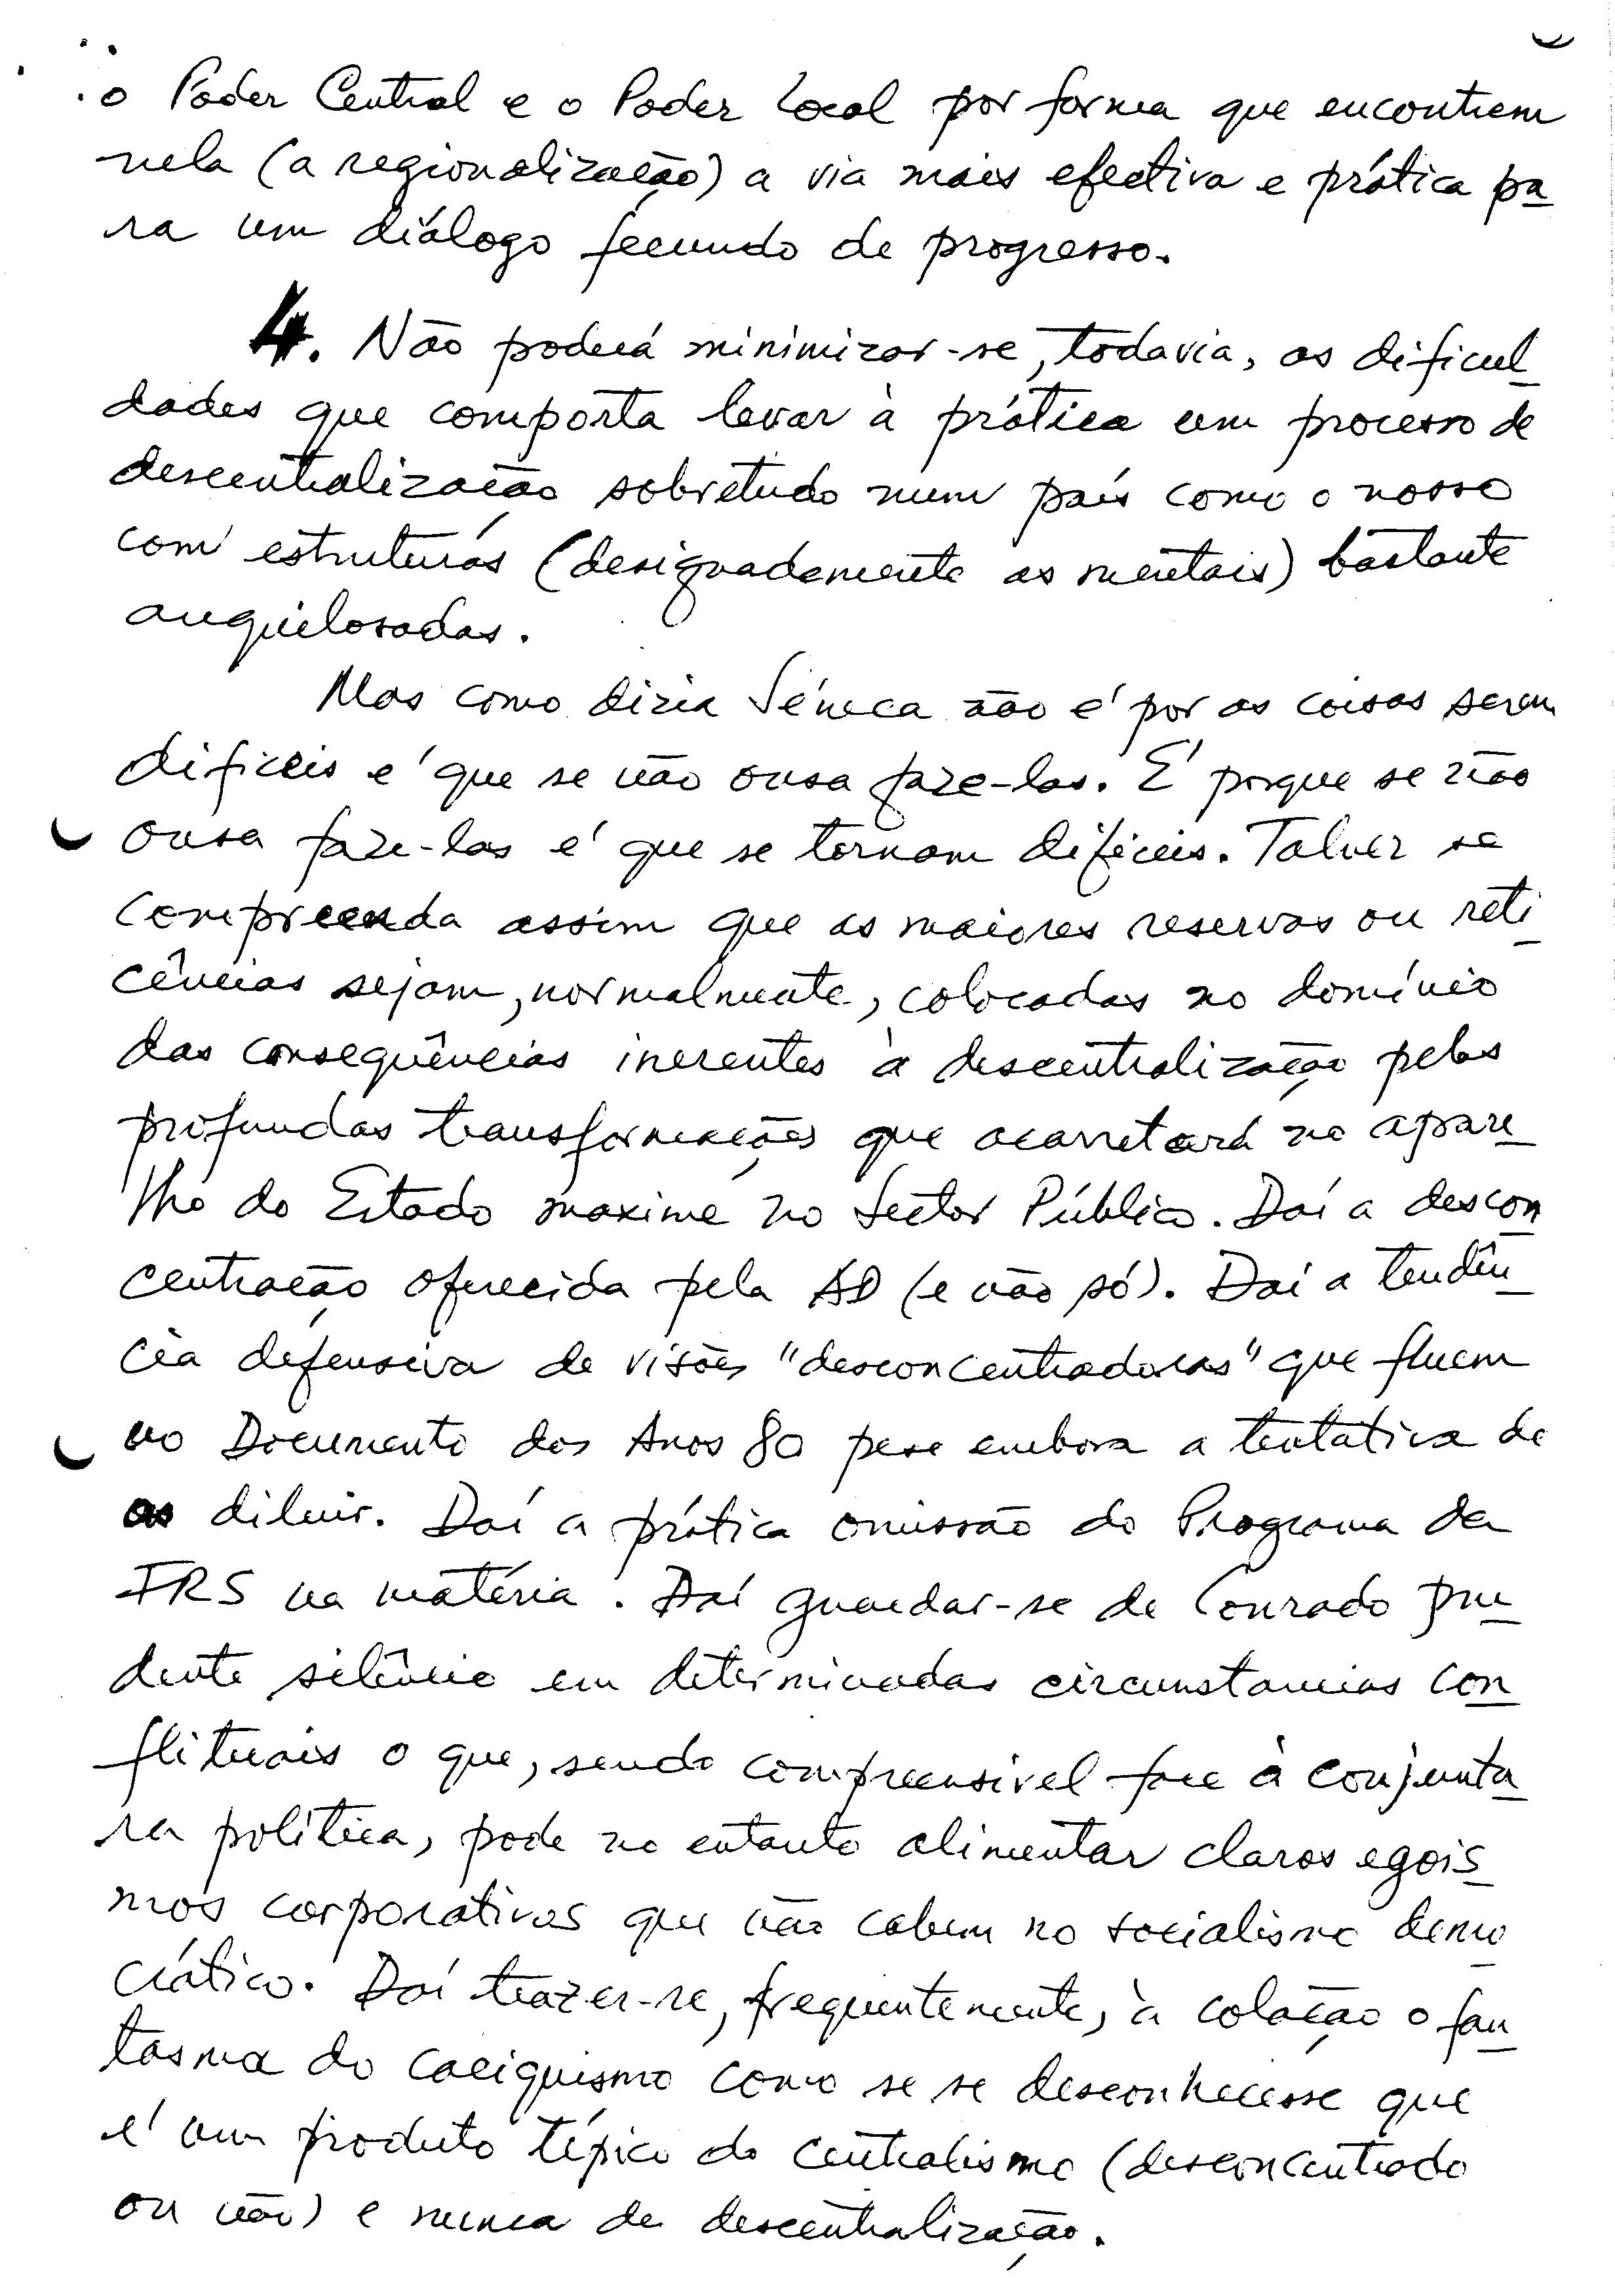 o Poder Central e o Poder Local por forma que encontrem
nela (a regionalização) a via mais efectiva e prática pa
ra um diálogo fecundo de progresso.
4. Não poderá minimizar-se, todavia, as dificul
dades que comporta levar à prática um processo de
descentralização sobretudo num país como o nosso
com estruturas (designadamente as mentais) bastante
anquilosadas.
Mas como diria Séneca não é por as coisas serem
dificeis é que se não ousa faze-las. É porque se não
ousa faze-las é que se tornam dificeis. Talvez se
compreenda assim que as maiores reservas ou reti
cências sejam, normalmente, colocadas no domínio
das consequências inerentes à descentralização pelas
profundas transformações que acarretará no apare
lho do Estado maxime no Sector Público. Daí a descon
centração oferecida pela AD (e não só). Daí a tendên
cia defensiva de visões "desconcentradoras" que fluem
no Documento dos Anos 80 pese embora a tentativa de
as diluir. Daí a prática omissão do Programa da
FRS na matéria. Daí guardar-se de Conrado pru
dente silêncio em determinadas circunstancias con
flituais o que, sendo compreensivel face à conjuntu
ra política, pode no entanto alimentar claros egois
mos corporativos que não cabem no socialismo demo
crático. Daí trazer-se, frequentemente, à colação o fan
tasma do caciquismo como se se desconhecesse que
é um produto típico do centralismo (desconcentrado
ou não) e nunca da descentralização.